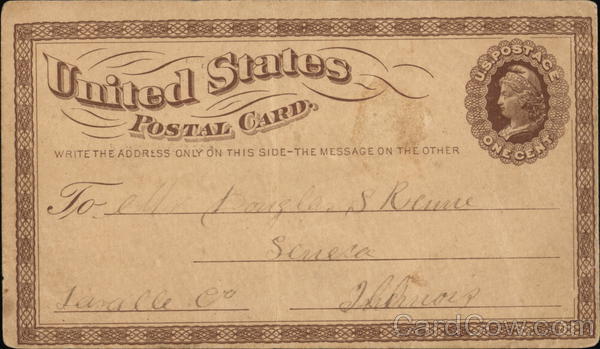 United States
POSTAL CARD.
U.S. POSTAGE
ONE CENT
WRITE THE ADDRESS ONLY ON THIS SIDE-THE MESSAGE ON THE OTHER
To Mr Douglas S
Seneca
Lasalle Co Illinois
CardCow.com